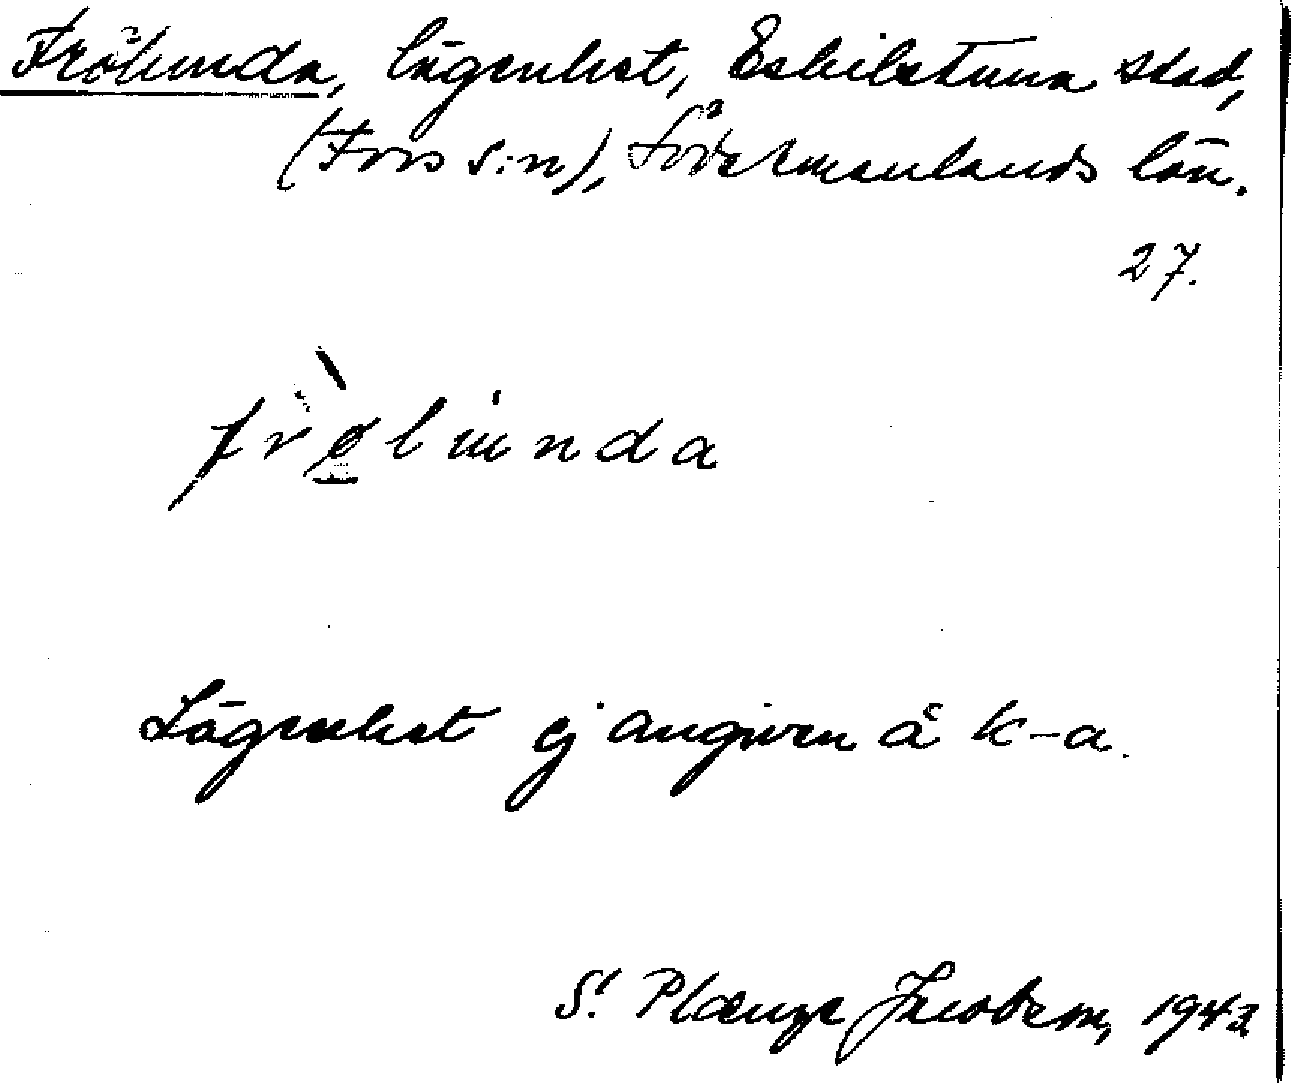 Frölunda, lägenhet, Eskilstuna stad,
(Fors s:n), Södermanlands län.
27.
frø̀lùnda
Lägenhet ej angiven å k-a.
S. Plænge Jacobson, 1942